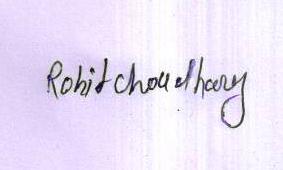 Rohit choudhary